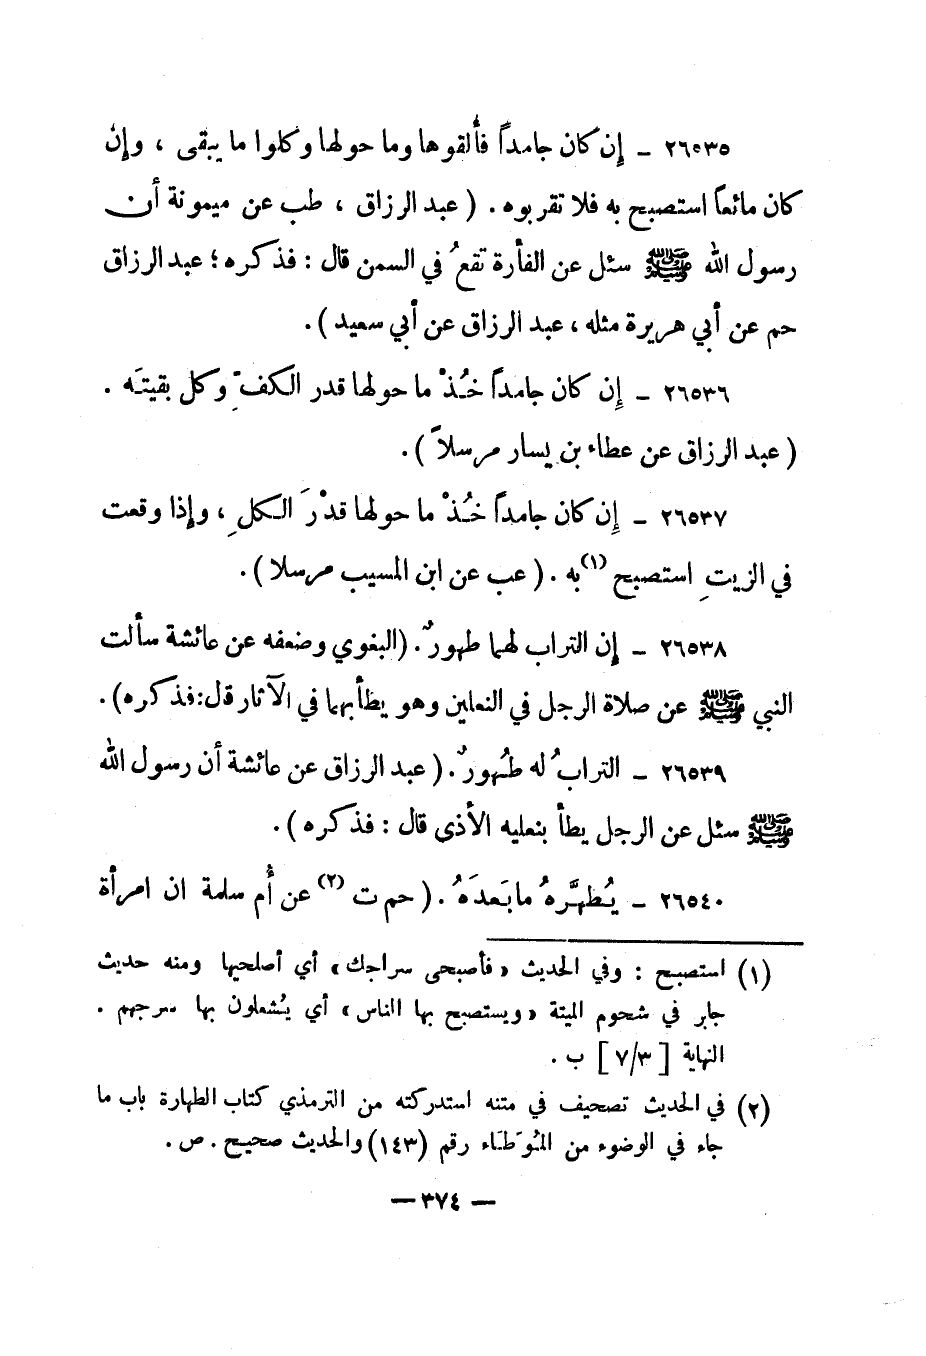 ٢٦٥٣٥ ـ إن كان جامداً فألقوها وما حولها وكلوا ما يبقى ، وإن
كان مائعاً استصبح به فلا تقربوه . ( عبد الرزاق ، طب عن ميمونة أن
رسول الله ﷺ سئل عن الفأرة تقعُ في السمن قال : فذكره ؛ عبد الرزاق
حم عن أبي هريرة مثله ، عبد الرزاق عن أبي سعيد ) .
٢٦٥٣٦ ـ إن كان جامداً خُذْ ما حولها قدر الكفِّ وكل بقيتَه .
( عبد الرزاق عن عطاء بن يسار مرسلاً ) .
٢٦٥٣٧ ـ إن كان جامداً خُذْ ما حولها قدْرَ الكلِ ، وإذا وقعت
في الزيتِ استصبح (١) به . ( عب عن ابن المسيب مرسلا ) .
٢٦٥٣٨ ـ إن التراب لهما طهورٌ . (البغوي وضعفه عن عائشة سألت
النبي ﷺ عن صلاة الرجل في النعلين وهو يطأ بهما في الآثار قل : فذكره) .
٢٦٥٣٩ ـ الترابُ له طَهورٌ . ( عبد الرزاق عن عائشة أن رسول الله
ﷺ سئل عن الرجل يطأ بنعليه الأذى قال : فذكره ) .
٢٦٥٤٠ ـ يُطهَّرهُ ما بَعدَهُ . ( حم ت (٢) عن أُم سلمة ان امرأة
(١) استصبح : وفي الحديث « فأصبحى سراجك » أي أصلحيها ومنه حديث
جابر في شحوم الميتة « ويستصبح بها الناس » أي يُشعلون بها سرجهم .
النهاية [ ٧/٣ ] ب .
(٢) في الحديث تصحيف في متنه استدركته من الترمذي كتاب الطهارة باب ما
جاء في الوضوء من المُوطَاء رقم (١٤٣) والحديث صحيح . ص .
— ٣٧٤ —